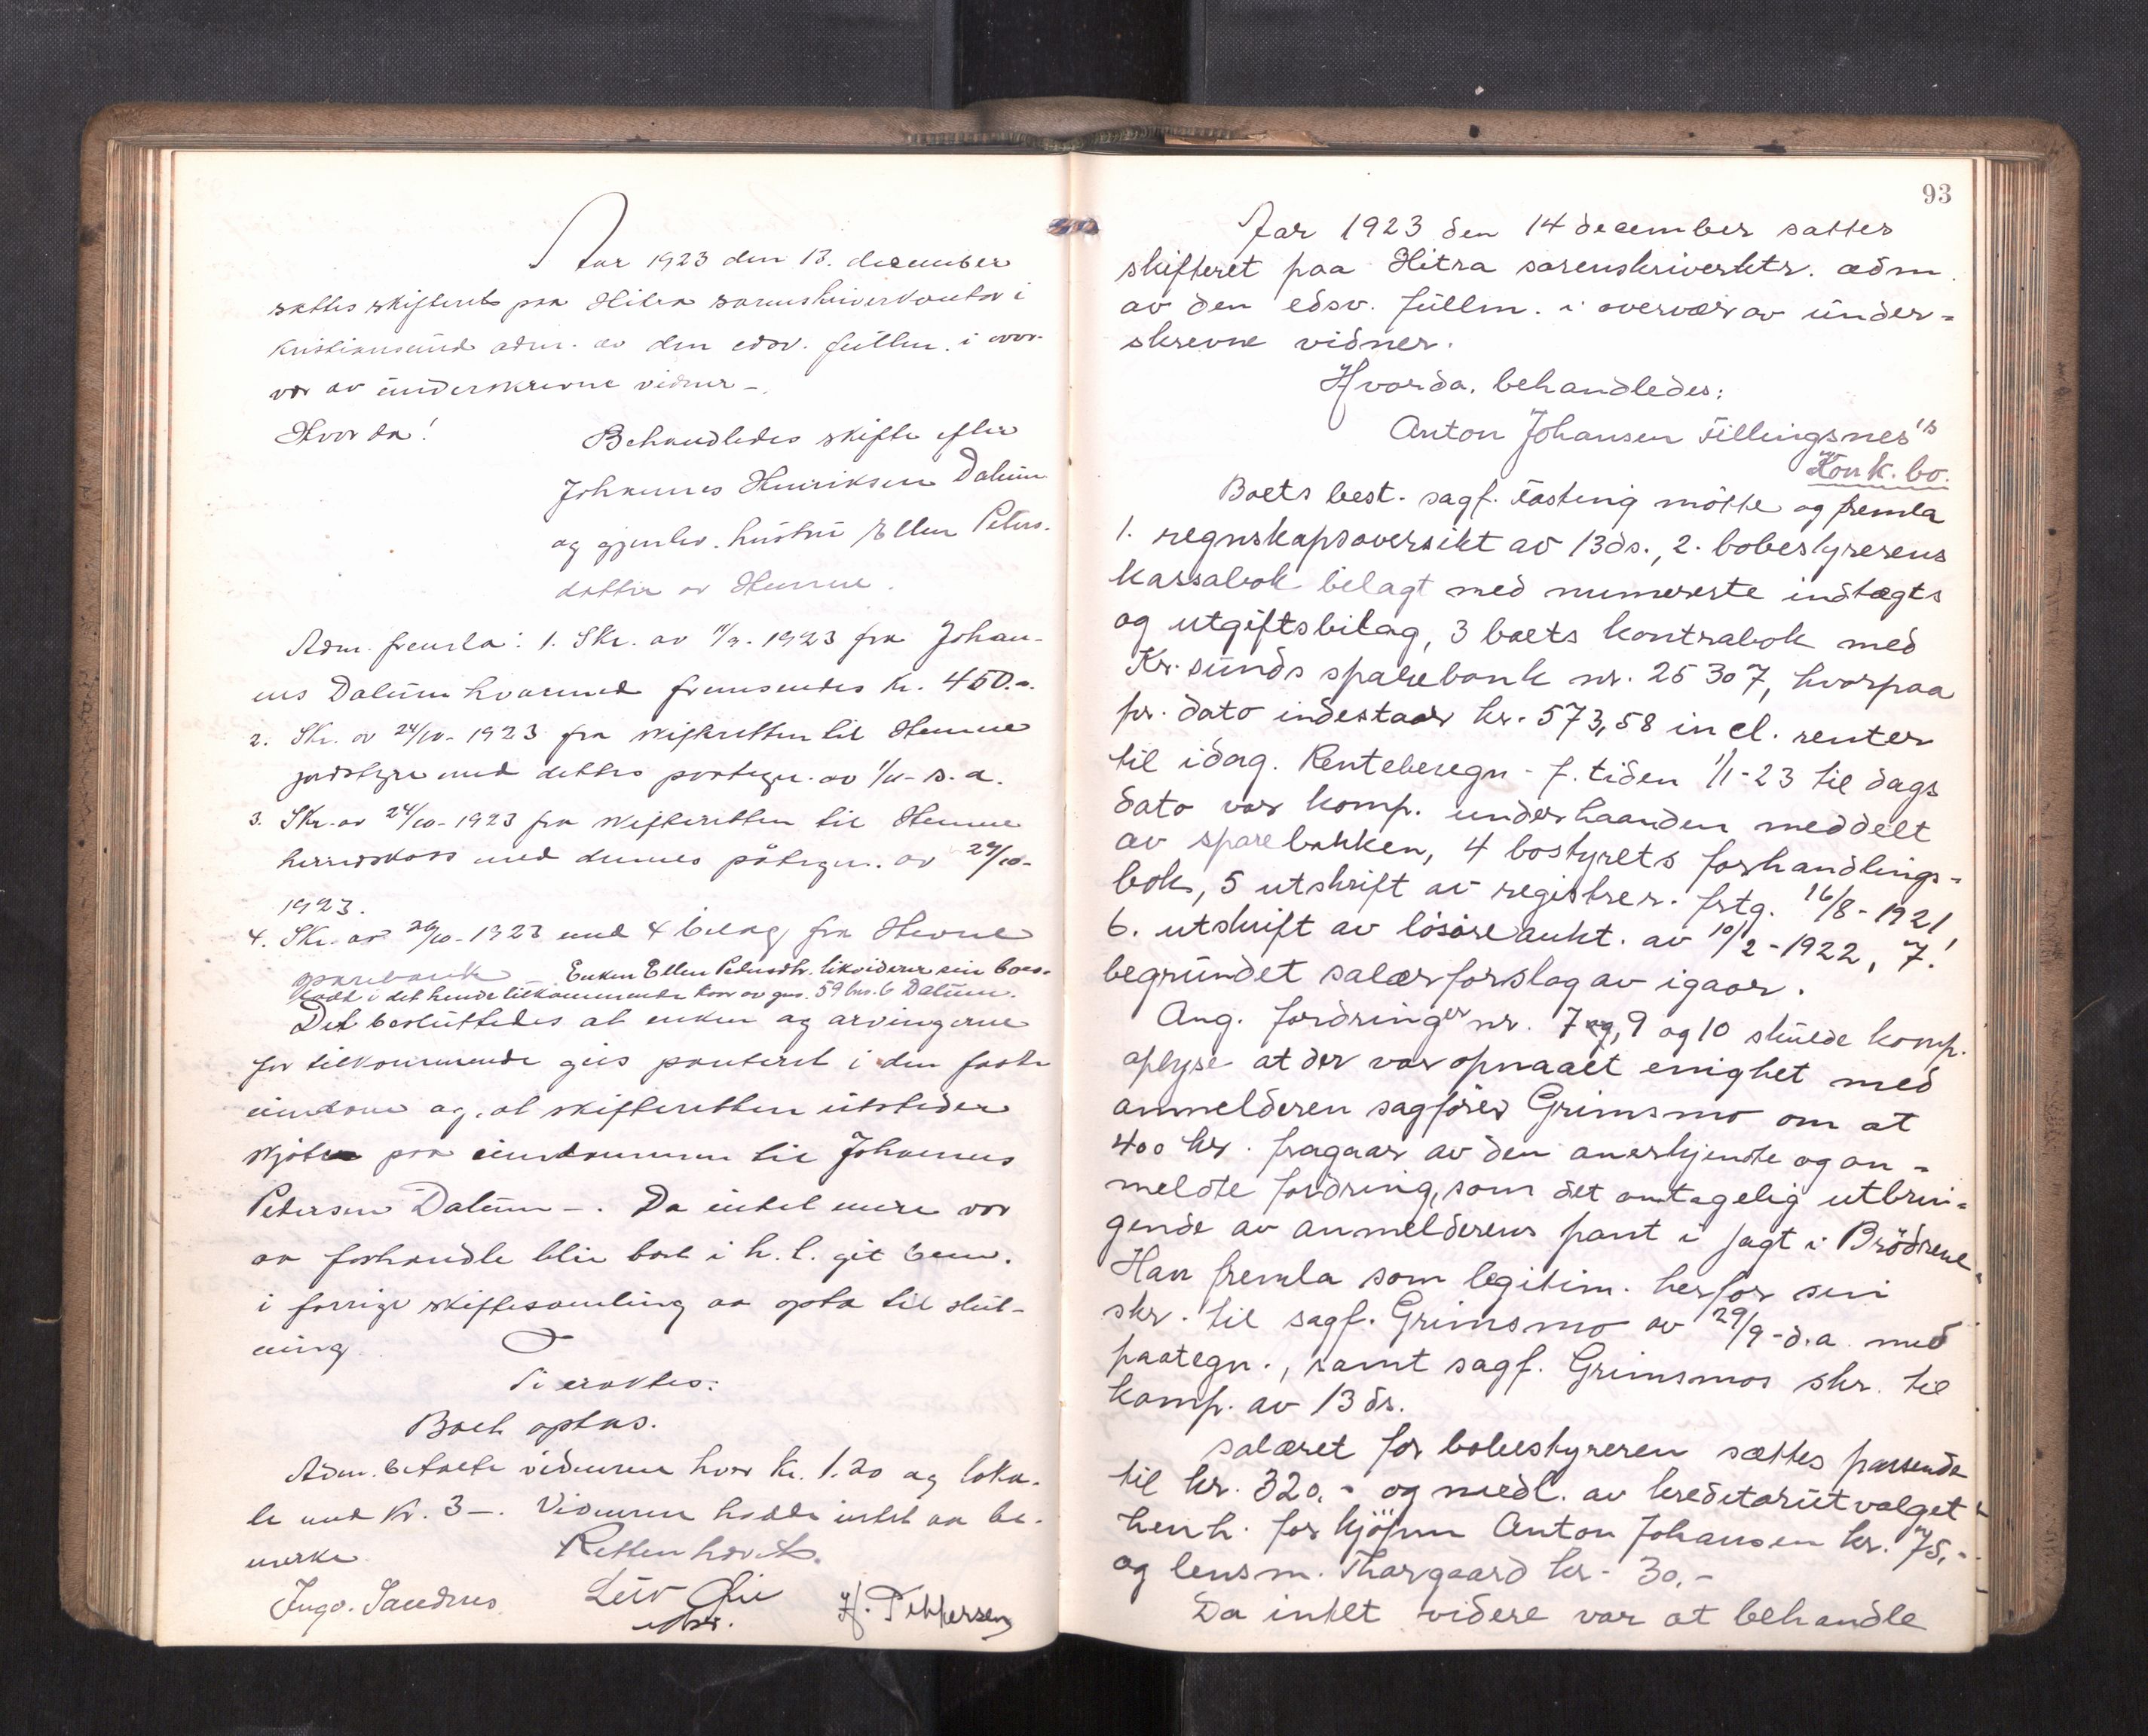 Aar 1923 den 13. december
sattes skifteret paa Hitra sorenskriverkontor i
Kristiansund adm. av den edsv. fullm. i over-
vær av underskrevne vidner -.
Hvor da!
Behandledes skifte efter
Johannes Henriksen Dalum
og gjenlev. hustru Ellen Peters-
datter av Hemne.
Adm. fremla: 1. Skr. av 11/9. 1923 fra Johan-
nes Dalum hvormed fremsendes kr. 450.-.
2. Skr. av 24/10-1923 fra skifteretten til Hemne
jordstyre med dettes paategn. av 1/11- s.a.
3. Skr. av 24/10-1923 fra skifteretten til Hemne
herredskass med dennes påtegn. av 29/10-
1923.
4. Skr. av 26/10-1923 med 4 bilag fra Hevne
sparebank - Enken Ellen Petersdtr. likviderer sin boes-
lodd i det hende tilkommende kaar av gnr. 59 bnr. 6 Dalum.
Det besluttedes at enken og arvingerne
for tilkommende gies panteret i den faste
eiendom og, at skifteretten utsteder
skjøte paa eiendommen til Johannes
Petersen Dalum -. Da intet mere var
aa forhandle blir boet i h. t. git bem.
i forrige skiftesamling aa opta til slut-
ning
Ti eraktes:
Boet optas.
Adm. betalte vidnerne hver kr. 1.20 og loka-
le med kr. 3-. Vidnerne hadde intet aa be-
merke.
Retten hævet.
Ingv. Sandnes Leiv H. Pettersen
93
Aar 1923 den 14 december sattes
skifteret paa Hitra sorenskriverktr. adm.
av den edsv. fullm. i overvær av under-
skrevne vidner.
Hvorda, behandledes:
Anton Johansen Fillingsnes's
Konk. bo.
Boets best. sagf. Fasting mötte og fremla
1. regnskapsoversikt av 13 ds., 2. bobestyrerens
kassabok bilagt med numererte indtægts
og utgiftsbilag, 3 boets kontrabok med
Kr.sunds sparebank nr. 25307, hvorpaa
pr. dato indestaar kr. 573,58 incl. renter
til idag. Renteberegn. f. tiden 1/1-23 til dags
dato var komp. underhaanden meddelt
av sparebanken, 4 bostyrets forhandlings-
bok, 5 utskrift av registrer. frtg. 16/8-1921
6. utskrift av lösöreaukt. av 10/2-1922, 7!
begrundet salærforslag av igaar.
Ang. fordringer nr. 7, 9 og 10 skulde komp.
oplyse at der var opnaaet enighet med
anmelderen sagförer Grimsmo om at
400 kr. fragaar av den anerkjendte og an-
meldte fordring, som det antagelig utbrin-
gende av anmelderens pant i jagt i Brödrene.
Han fremla som legitim. herfor sin
skr. til sagf. Grimsmo av 29/9-d.a. med
paategn., samt sagf. Grimsmos skr. til
komp. av 13 ds.
Salæret for bobestyreren sættes passende
til kr. 320.- og medl. av kreditorutvalget
henh. for kjöpm Anton Johansen kr. 75.-
og lensm. Thorgaard kr. 30.-
Da intet videre var at behandle